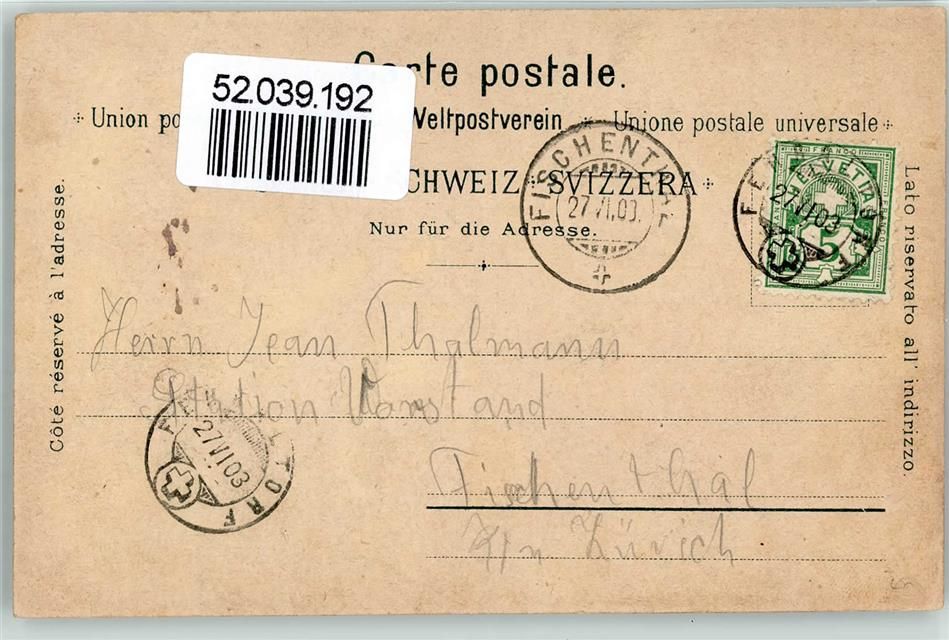 Carte postale.
52.039.192
Union Weltpostverein Unione postale universale
SCHWEIZ SVIZZERA
Nur für die Adresse.
Côté réservé à l'adresse.
Lato riservato all' indirizzo.
FISCHENTHAL
27.VI.03.
FRANCO
HELVETIA
5
27.VI.03
Herrn Jean Thalmann
Station Vorstand
Fischenthal
Ktn Zürich
27.VI.03